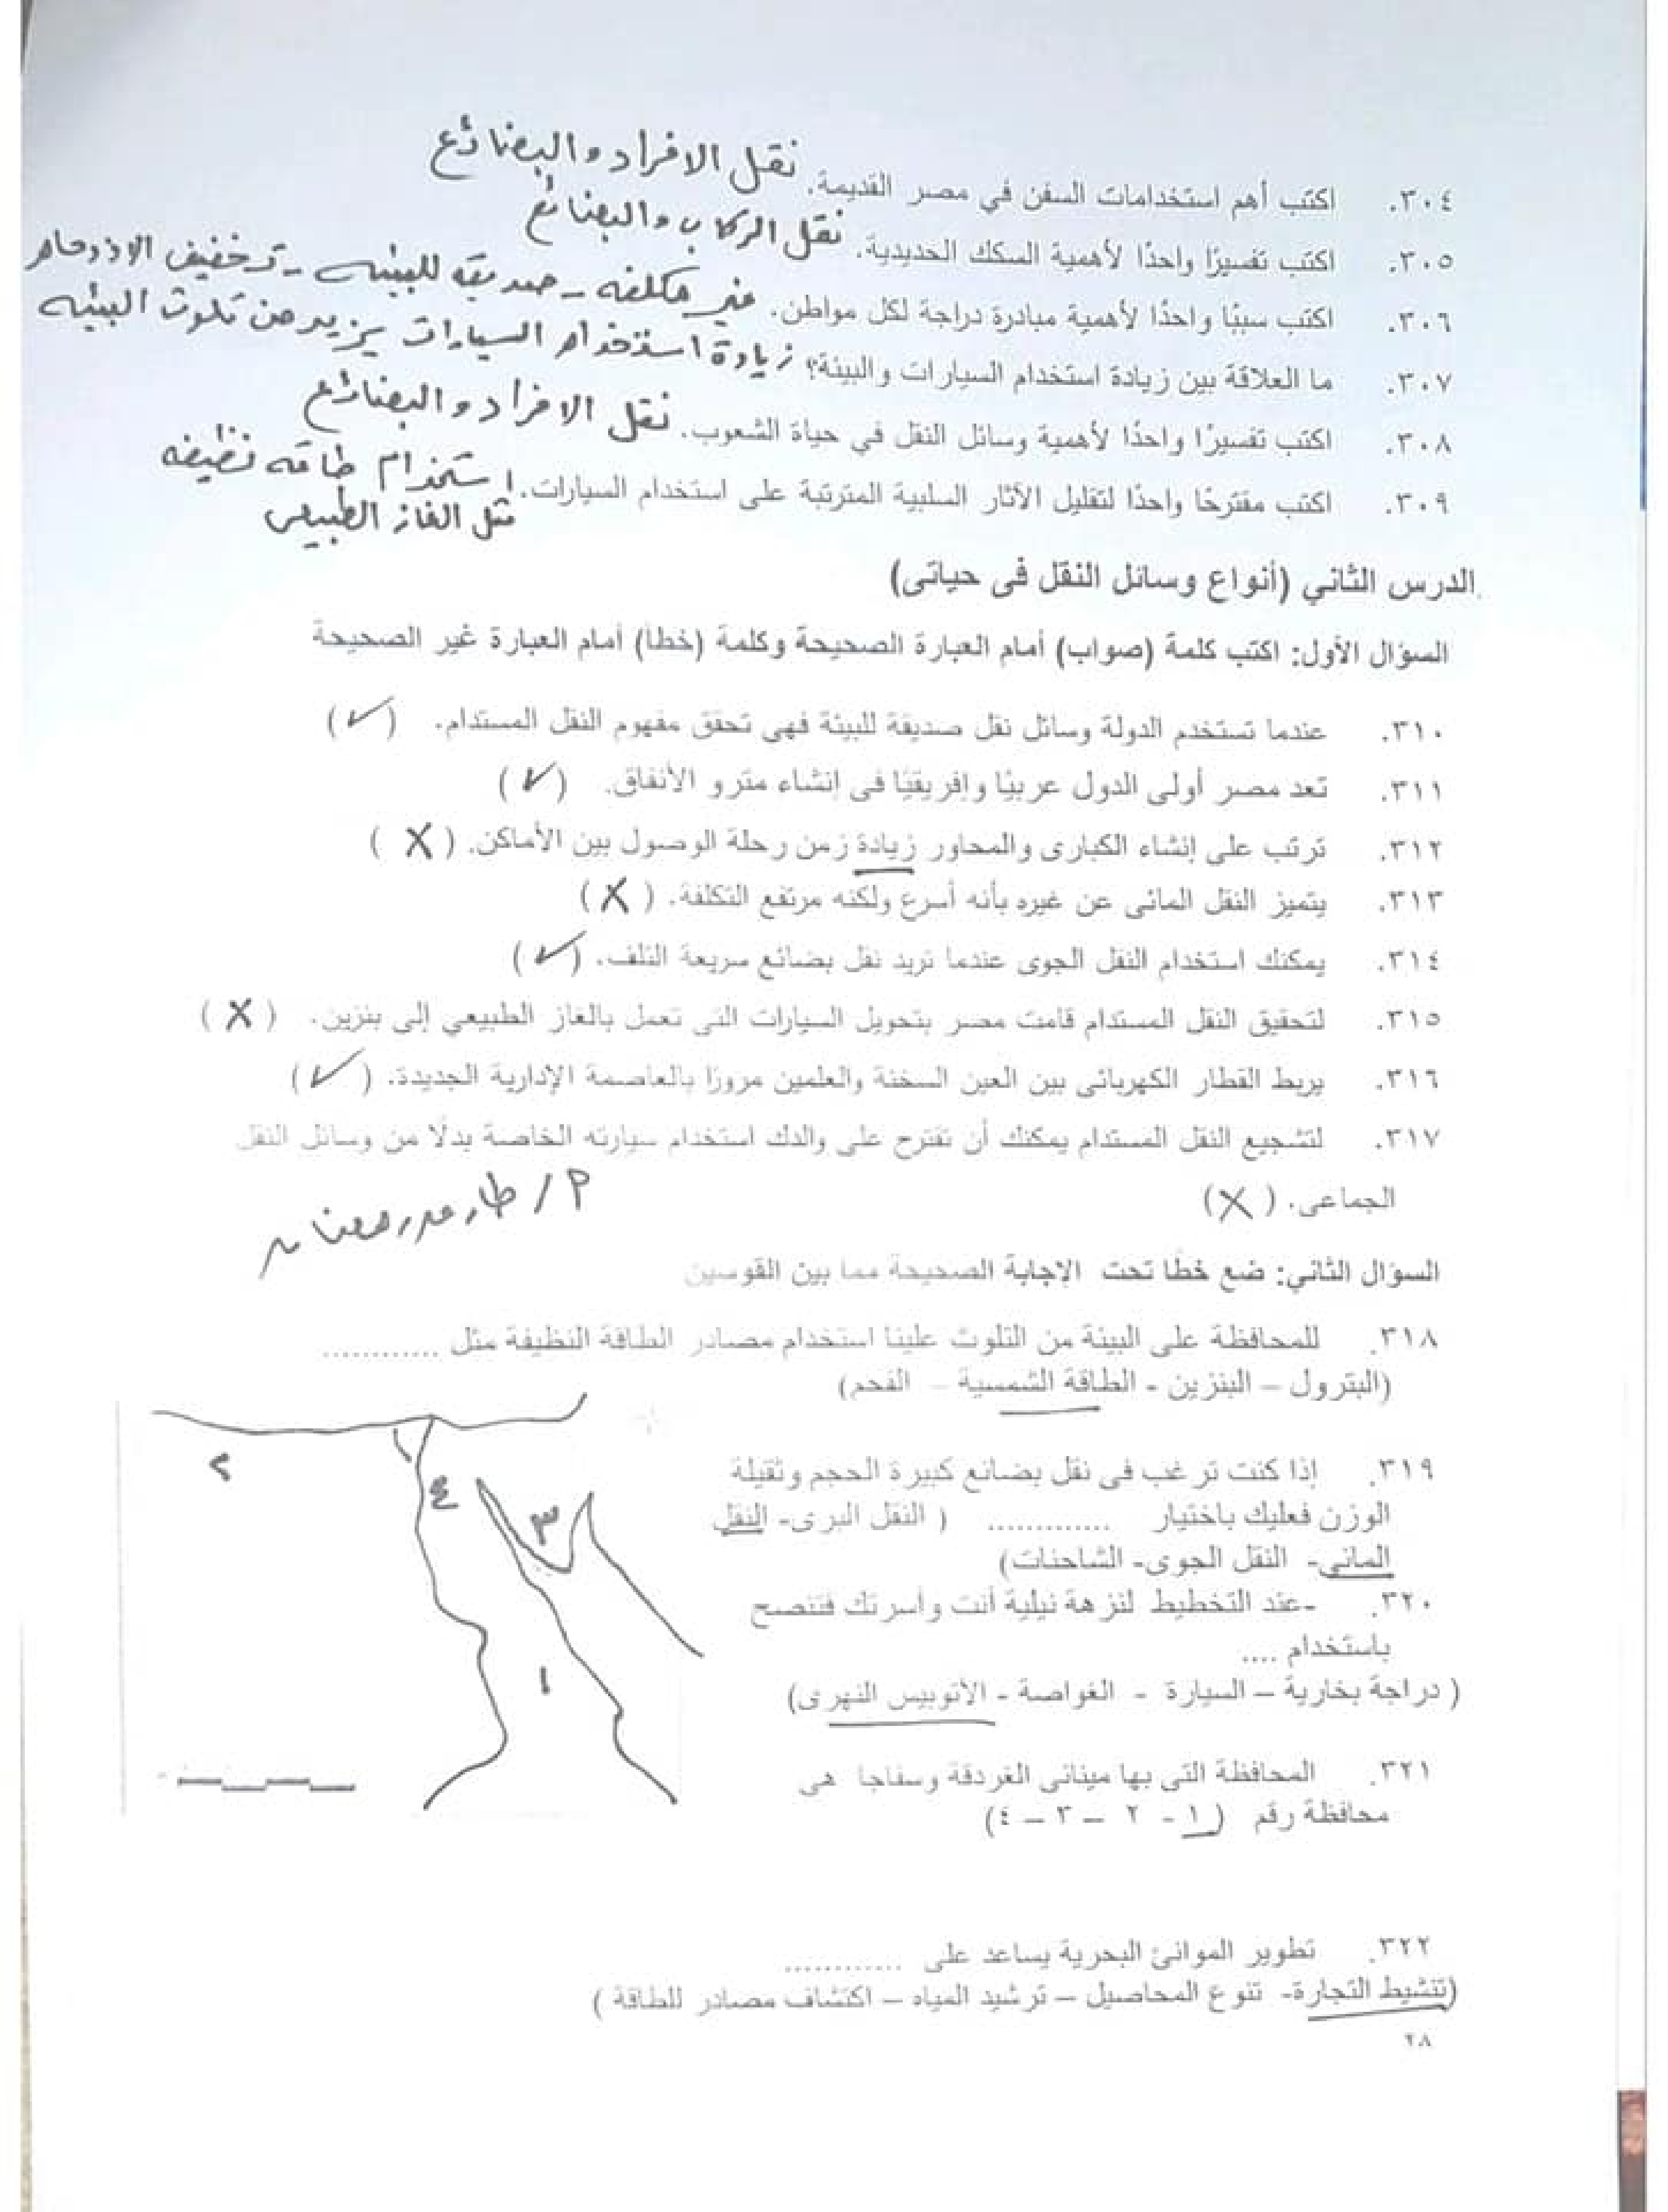 ٣٠٤. اكتب أهم استخدامات السفن في مصر القديمة. نقل الافراد والبضائع
٣٠٥. اكتب تفسيرًا واحدًا لأهمية السكك الحديدية. نقل الركاب والبضائع
٣٠٦. اكتب سببًا واحدًا لأهمية مبادرة دراجة لكل مواطن. غير مكلفه - صديقه للبيئه - تخفيف الازدحام
٣٠٧. ما العلاقة بين زيادة استخدام السيارات والبيئة؟ زيادة استخدام السيارات يزيد من تلوث البيئه
٣٠٨. اكتب تفسيرًا واحدًا لأهمية وسائل النقل في حياة الشعوب. نقل الافراد والبضائع
٣٠٩. اكتب مقترحًا واحدًا لتقليل الآثار السلبية المترتبة على استخدام السيارات. استخدام طاقه نظيفه
مثل الغاز الطبيعي
الدرس الثاني (أنواع وسائل النقل فى حياتى)
السؤال الأول: اكتب كلمة (صواب) أمام العبارة الصحيحة وكلمة (خطأ) أمام العبارة غير الصحيحة
٣١٠. عندما تستخدم الدولة وسائل نقل صديقة للبيئة فهى تحقق مفهوم النقل المستدام. (✓)
٣١١. تعد مصر أولى الدول عربيًا وإفريقيًا فى إنشاء مترو الأنفاق. (✓)
٣١٢. ترتب على إنشاء الكبارى والمحاور زيادة زمن رحلة الوصول بين الأماكن. (X)
٣١٣. يتميز النقل المائى عن غيره بأنه أسرع ولكنه مرتفع التكلفة. (X)
٣١٤. يمكنك استخدام النقل الجوى عندما تريد نقل بضائع سريعة التلف. (✓)
٣١٥. لتحقيق النقل المستدام قامت مصر بتحويل السيارات التى تعمل بالغاز الطبيعي إلى بنزين. (X)
٣١٦. يربط القطار الكهربائى بين العين السخنة والعلمين مرورًا بالعاصمة الإدارية الجديدة. (✓)
٣١٧. لتشجيع النقل المستدام يمكنك أن تقترح على والدك استخدام سيارته الخاصة بدلًا من وسائل النقل
الجماعى. (X)
السؤال الثاني: ضع خطًا تحت الإجابة الصحيحة مما بين القوسين
٣١٨. للمحافظة على البيئة من التلوث علينا استخدام مصادر الطاقة النظيفة مثل ............
(البترول – البنزين - الطاقة الشمسية – الفحم)
٣١٩. إذا كنت ترغب فى نقل بضائع كبيرة الحجم وثقيلة
الوزن فعليك باختيار ............ ( النقل البرى- النقل
المائى- النقل الجوى- الشاحنات)
٣٢٠. -عند التخطيط لنزهة نيلية أنت وأسرتك فتنصح
باستخدام ....
( دراجة بخارية – السيارة - الغواصة - الأتوبيس النهرى)
٣٢١. المحافظة التى بها مينائى الغردقة وسفاجا هى
محافظة رقم (١ - ٢ – ٣ – ٤)
٢
٤
٣
١
٣٢٢. تطوير الموانئ البحرية يساعد على ............
(تنشيط التجارة- تنوع المحاصيل – ترشيد المياه – اكتشاف مصادر للطاقة )
٢٨